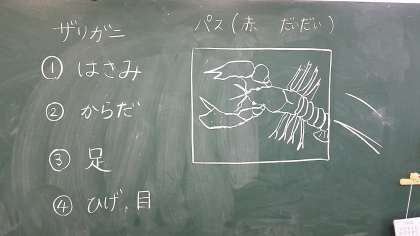 ザリガニ
① はさみ
② からだ
③ 足
④ ひげ、目
パス(赤 だいだい)